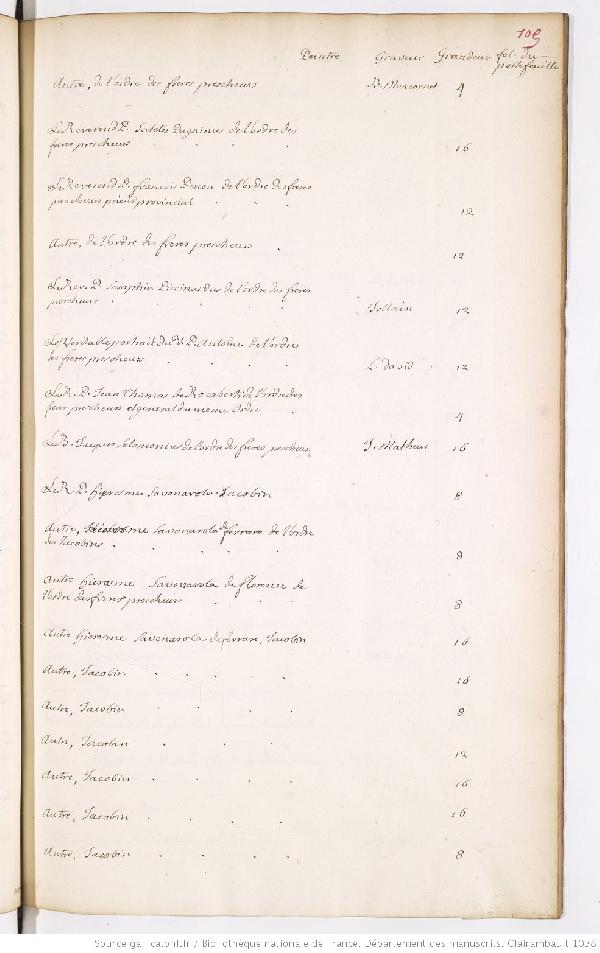 109
Peintre Graveur Grandeur fol. du
portefeuille
Autre, de l'ordre des freres prescheurs B. Moncornet 4
Le Reverend P. Pagninus de l'ordre des
freres prescheurs 16
Le Reverend P. francois de l'ordre des freres
prescheurs prieur provincial 12
Autre, de l'ordre des freres prescheurs 12
Le Rev. P. Seraphin de l'ordre des freres
prescheurs Jollain 12
Le Veritable portrait du V. P. Antoine de l'ordre
des freres prescheurs L. david 12
Le R. P. Jean Thomas de Rocaberti de l'ordre des
freres prescheurs et general du mesme Ordre 4
Le B. Jacques Salomonius de l'ordre des freres prescheurs J. Matheus 16
Le R. P. hierosme Savonarola Jacobin 8
Autre, hierosme Savonarola de ferrare de l'ordre
des Jacobins 8
Autre hierosme Savonarola de florence de
l'ordre des freres prescheurs 8
Autre hierosme Savonarola de ferrare, Jacobin 16
Autre, Jacobin 16
Autre, Jacobin 8
Autre, Jacobin 12
Autre, Jacobin 16
Autre, Jacobin 16
Autre, Jacobin 8
Source gallica.bnf.fr / Bibliothèque nationale de France. Département des manuscrits. Clairambault 1038